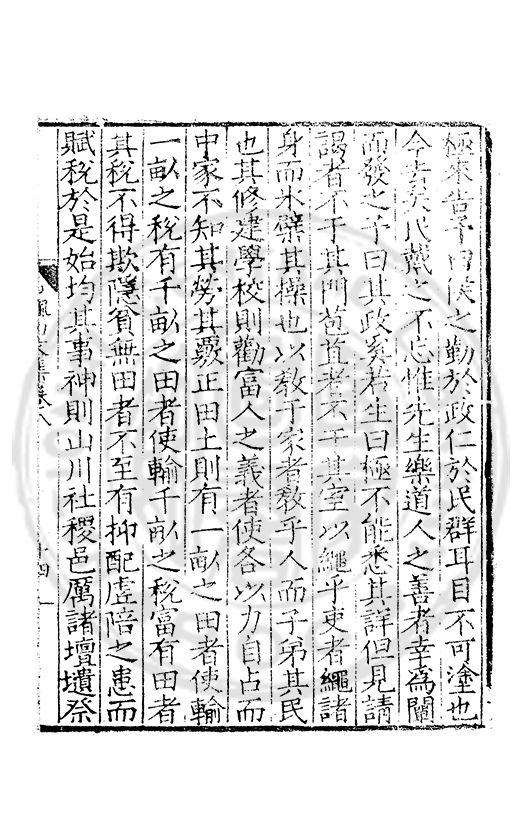 極來告予曰侯之勤於政仁於民群耳目不可塗也
今去矣民戴之不忘惟先生樂道人之善者幸為闡
而發之予曰其政奚若生曰極不能悉其詳但見請
謁者不于其門苞苴者不于其室以繩乎吏者繩諸
身而氷檗其操也以教于家者教乎人而子弟其民
也其修建學校則勸富人之義者使各以力自占而
中家不知其勞其覈正田土則有一畝之田者使輸
一畝之稅有千畝之田者使輸千畝之稅富有田者
其稅不得欺隱貧無田者不至有抑配虗陪之患而
賦稅於是始均其事神則山川社稷邑厲諸壇壝祭
文集卷八 十四